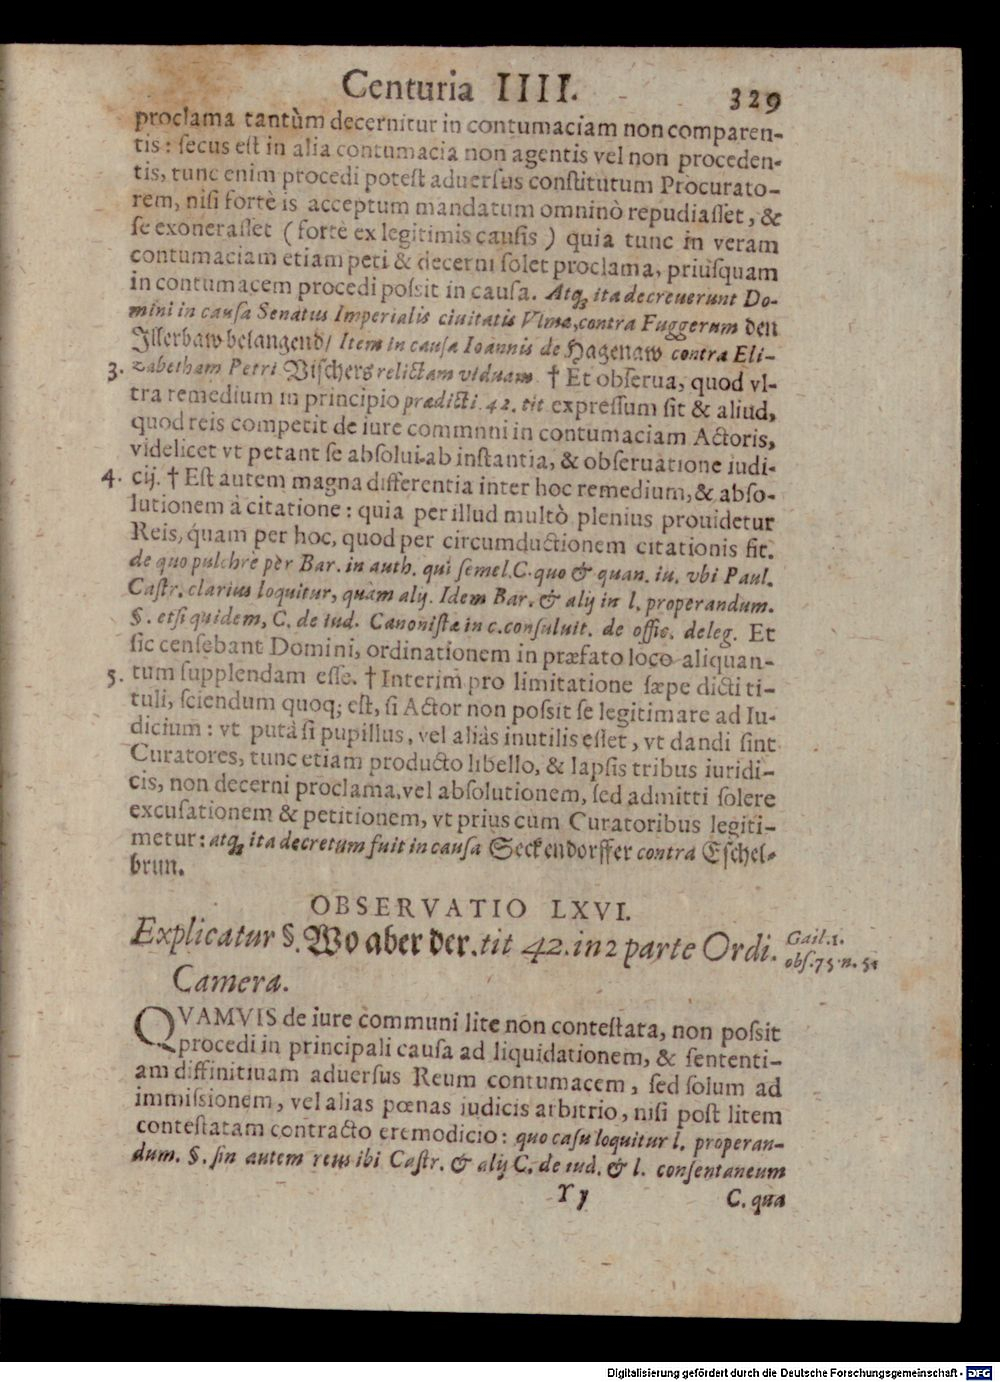 Centuria IIII. 329
proclama tantùm decernitur in contumaciam non comparen-
tis: ſecus eſt in alia contumacia non agentis vel non proceden-
tis, tunc enim procedi poteſt aduerſus conſtitutum Procurato-
rem, niſi fortè is acceptum mandatum omninò repudiaſſet, &
ſe exoneraſſet (fortè ex legitimis cauſis) quia tunc in veram
contumaciam etiam peti & decerni ſolet proclama, priuſquam
in contumacem procedi poſsit in cauſa. Atq; ita decreuerunt Do-
mini in cauſa Senatus Imperialis ciuitatis Vlmæ, contra Fuggerum den
Illerbaw belangend/ Item in cauſa Ioannis de Hagenaw contra Eli-
3. zabetham Petri Viſchers relictam viduam. † Et obſerua, quod vl-
tra remedium in principio prædicti. 42. tit expreſſum ſit & aliud,
quod reis competit de iure commnni in contumaciam Actoris,
videlicet vt petant ſe abſolui ab inſtantia, & obſeruatione iudi-
4. cij. † Eſt autem magna differentia inter hoc remedium, & abſo-
lutionem à citatione: quia per illud multò plenius prouidetur
Reis, quam per hoc, quod per circumductionem citationis fit.
de quo pulchre per Bar. in auth. qui ſemel. C. quo & quan. iu. vbi Paul.
Caſtr. clarius loquitur, quàm alij. Idem Bar. & alij in l. properandum.
§. etſi quidem, C. de iud. Canoniſtæ in c. conſuluit. de offic. deleg. Et
ſic cenſebant Domini, ordinationem in præfato loco aliquan-
5. tum ſupplendam eſſe. † Interim pro limitatione ſæpe dicti ti-
tuli, ſciendum quoq; eſt, ſi Actor non poſsit ſe legitimare ad Iu-
dicium: vt putà ſi pupillus, vel aliàs inutilis eſſet, vt dandi ſint
Curatores, tunc etiam producto libello, & lapſis tribus iuridi-
cis, non decerni proclama, vel abſolutionem, ſed admitti ſolere
excuſationem & petitionem, vt prius cum Curatoribus legiti-
metur: atq; ita decretum fuit in cauſa Seckendorffer contra Eſchel-
brun.
OBSERVATIO LXVI.
Explicatur §. Wo aber der. tit 42. in 2 parte Ordi.
Camera.
Gail. 1.
obſ. 75. n. 51
QVAMVIS de iure communi lite non conteſtata, non poſsit
procedi in principali cauſa ad liquidationem, & ſententi-
am diffinitiuam aduerſus Reum contumacem, ſed ſolum ad
immiſsionem, vel alias pœnas iudicis arbitrio, niſi poſt litem
conteſtatam contracto eremodicio: quo caſu loquitur l. properan-
dum. §. ſin autem reus ibi Caſtr. & alij C. de iud. & l. conſentaneum
Y y C. qua
Digitalisierung gefördert durch die Deutsche Forschungsgemeinschaft - DFG